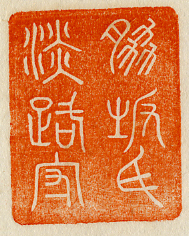 脇坂氏
淡路守